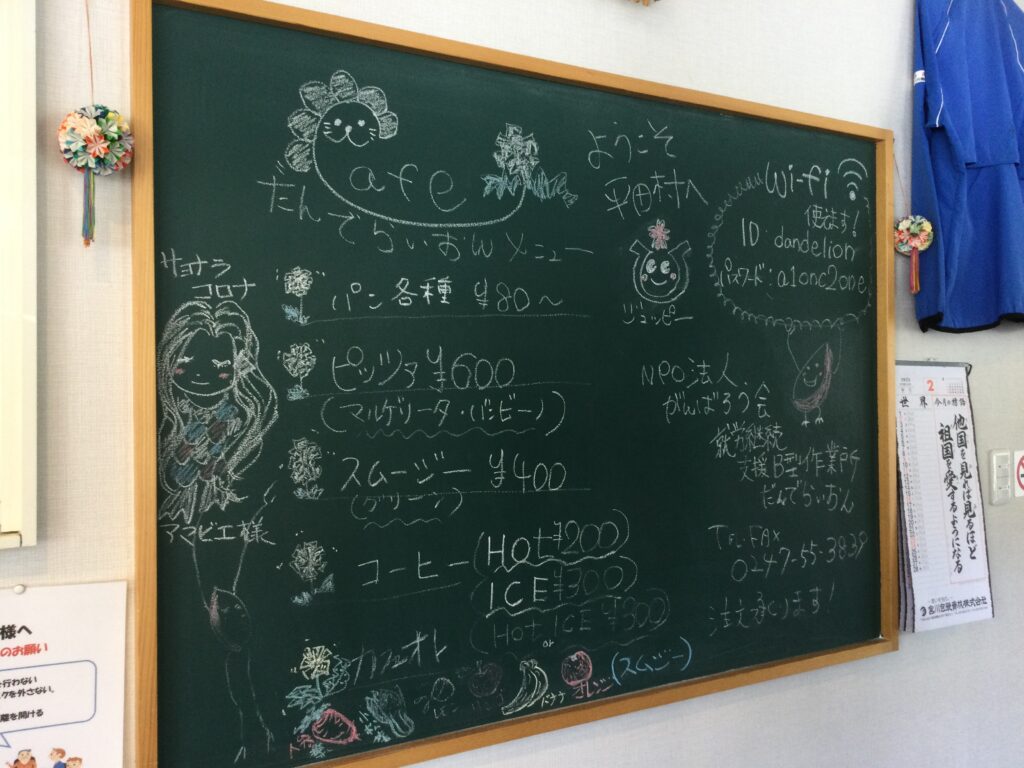 cafe
たんでらいおんメニュー
パン各種 ¥80～
ピッツァ ¥600
(マルゲリータ・バンビーノ)
スムージー ¥400
(グリーン)
コーヒー HOt ¥200
ICE ¥300
カフェオレ Hot or ICE ¥300
オレンジ (スムージー)
サヨナラ
コロナ
アマビエ様
ようこそ
平田村へ
ジュッピー
Wi-fi
使えます!
ID:dandelion
パスワード:a1onc2one
NPO法人
がんばろう会
就労継続
支援B型作業所
たんでらいおん
Tel・FAX
0247-55-3838
注文承ります!
2
世界 今月の標語
他国を見れば見るほど
祖国を愛するようになる
様へ
のお願い
を行わない
クを外さない。
離を開ける